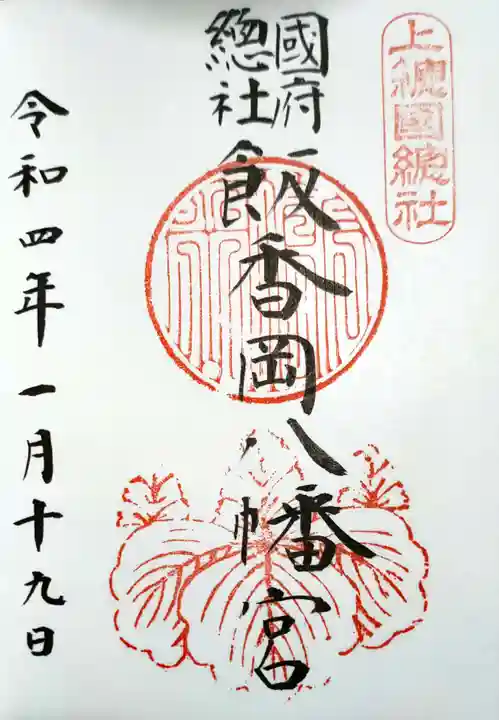 上總國總社
國府
總社
飯香岡八幡宮
令和四年一月十九日